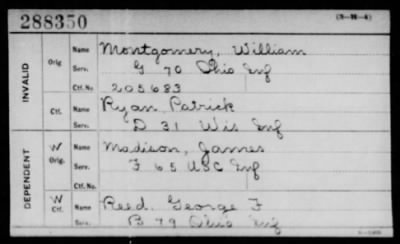 288350 (3-H-4)
INVALID
Orig. Name Montgomery, William
Serv. G 70 Ohio Inf
Ctf. No. 205683
Ctf. Name Ryan Patrick
Serv. D 31 Wis Inf
DEPENDENT
W Orig. Name Madison, James
Serv. F 65 USC Inf
Ctf. No.
W Ctf. Name Reed, George F
Serv. B 79 Ohio Inf